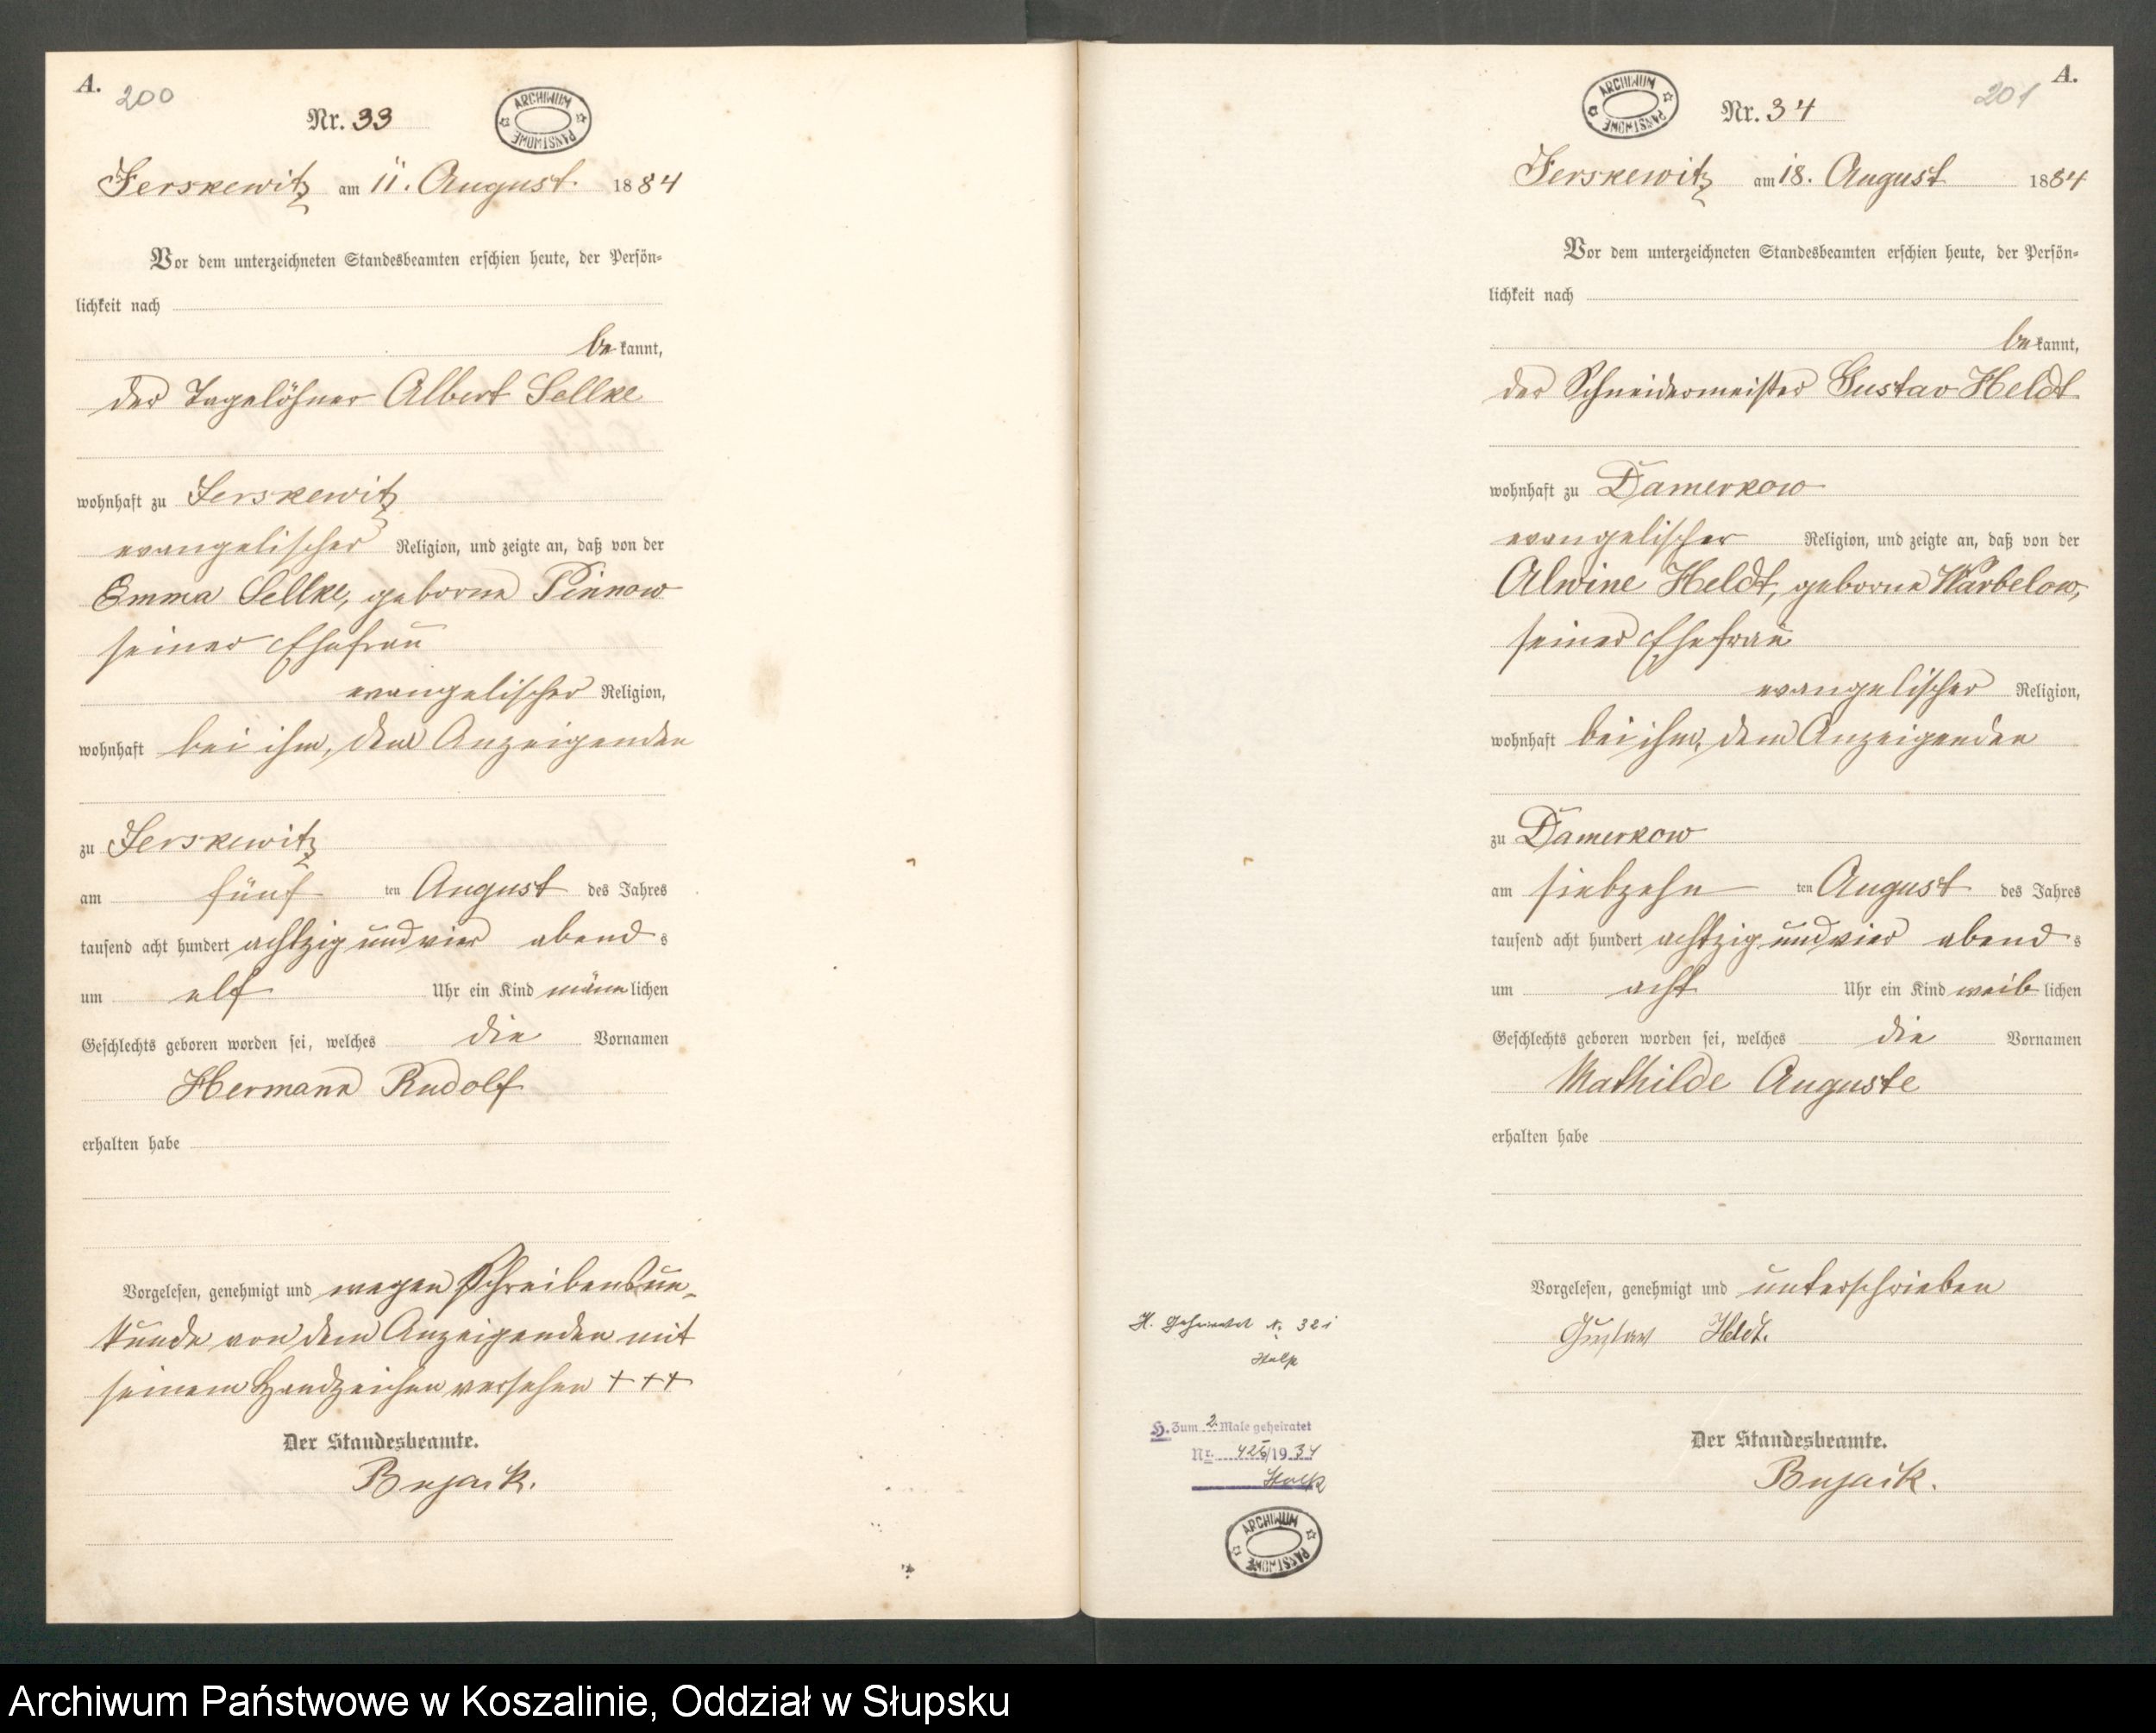 A.
200
Nr. 33
ARCHIWUM PAŃSTWOWE
Jerskewitz am 11. August 1884
Vor dem unterzeichneten Standesbeamten erschien heute, der Persön-
lichkeit nach
be kannt,
der Tagelöhner Albert Sellke
wohnhaft zu Jerskewitz
evangelischer Religion, und zeigte an, daß von der
Emma Sellke, geborne Pinnow
seiner Ehefrau
evangelischer Religion,
wohnhaft bei ihm, dem Anzeigenden
zu Jerskewitz
am fünf ten August des Jahres
tausend acht hundert achtzig und vier abend s
um elf Uhr ein Kind männ lichen
Geschlechts geboren worden sei, welches die Vornamen
Hermann Rudolf
erhalten habe
Vorgelesen, genehmigt und wegen Schreibensun-
kunde von dem Anzeigenden mit
seinem Handzeichen versehen +++
Der Standesbeamte.
A.
201
Nr. 34
ARCHIWUM PAŃSTWOWE
Jerskewitz am 18. August 1884
Vor dem unterzeichneten Standesbeamten erschien heute, der Persön-
lichkeit nach
be kannt,
der Schneidermeister Gustav Heldt
wohnhaft zu Damerkow
evangelischer Religion, und zeigte an, daß von der
Alwine Heldt, geborne Warbelow,
seiner Ehefrau
evangelischer Religion,
wohnhaft bei ihm, dem Anzeigenden
zu Damerkow
am siebzehn ten August des Jahres
tausend acht hundert achtzig und vier abend s
um acht Uhr ein Kind weib lichen
Geschlechts geboren worden sei, welches die Vornamen
Mathilde Auguste
erhalten habe
Vorgelesen, genehmigt und unterschrieben
Gustav Heldt.
Der Standesbeamte.
H. Zum 2. Male geheiratet
Nr. 426/1934
ARCHIWUM PAŃSTWOWE
Archiwum Państwowe w Koszalinie, Oddział w Słupsku